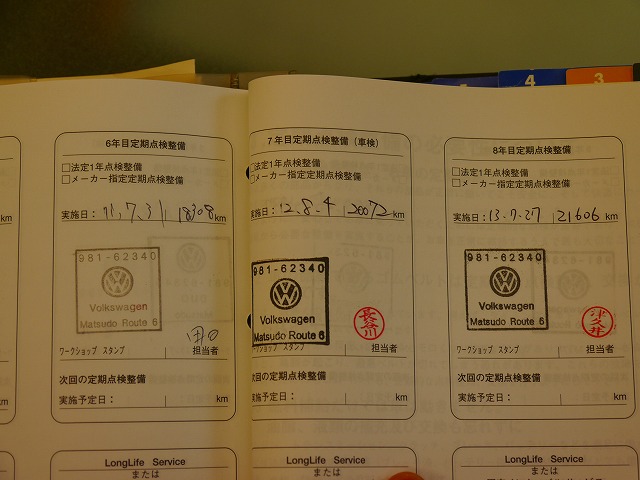 4
3
6年目定期点検整備
□法定1年点検整備
□メーカー指定定期点検整備
実施日： 11.7.31 18308 km
981-62340
Volkswagen
Matsudo Route 6
ワークショップ スタンプ 担当者
次回の定期点検整備
実施予定日： km
LongLife Service
または
7年目定期点検整備（車検）
□法定1年点検整備
□メーカー指定定期点検整備
実施日： 12.8.4 20072 km
981-62340
Volkswagen
Matsudo Route 6
長谷川
ワークショップ スタンプ 担当者
次回の定期点検整備
実施予定日： km
LongLife Service
または
8年目定期点検整備
□法定1年点検整備
□メーカー指定定期点検整備
実施日： 13.7.27 21606 km
981-62340
Volkswagen
Matsudo Route 6
津久井
ワークショップ スタンプ 担当者
次回の定期点検整備
実施予定日： km
LongLife Service
または
km
km